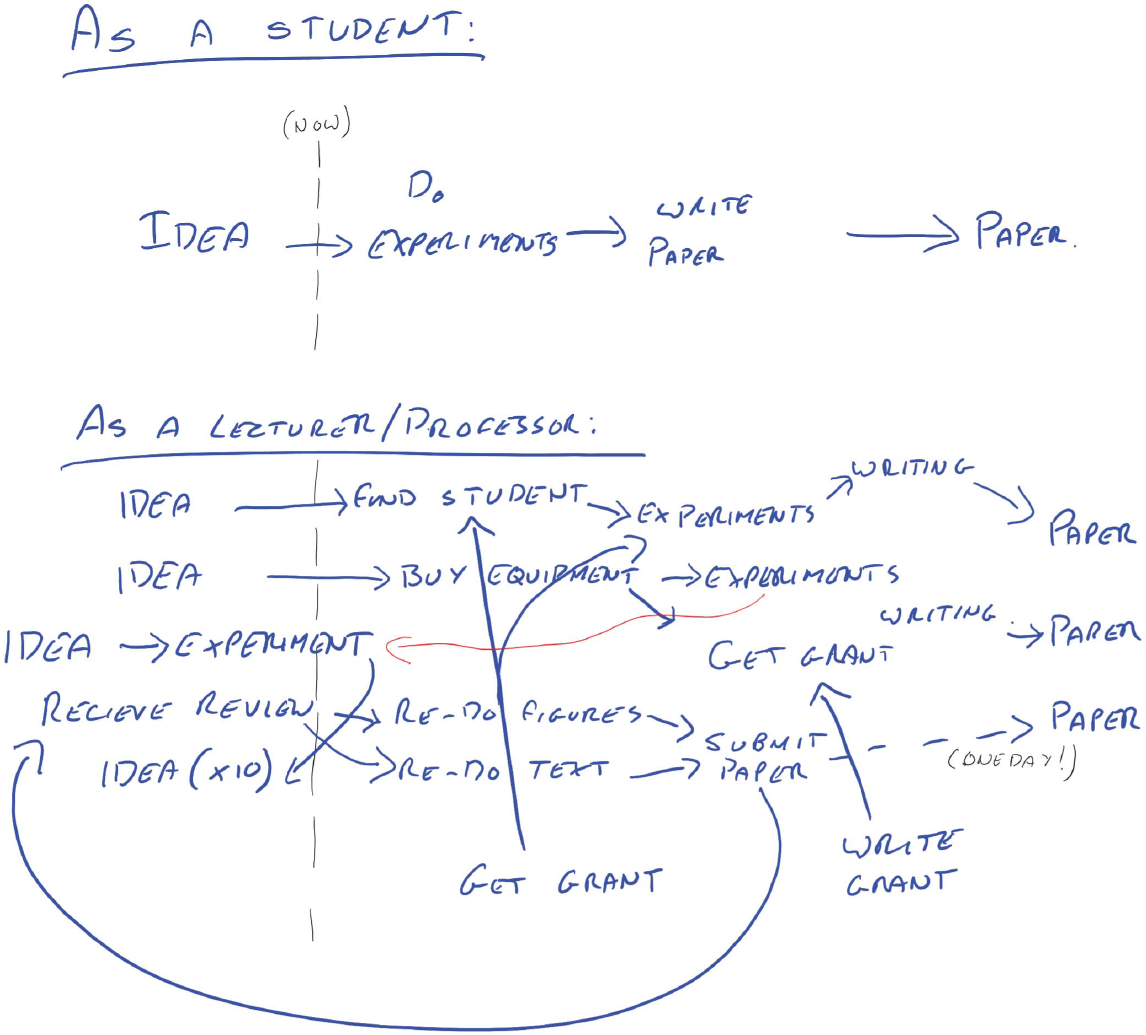 AS A STUDENT:
(NOW)
IDEA → DO EXPERIMENTS → WRITE PAPER → PAPER.
AS A LECTURER/PROFESSOR:
IDEA → FIND STUDENT → EXPERIMENTS → WRITING → PAPER
IDEA → BUY EQUIPMENT → EXPERIMENTS
IDEA → EXPERIMENT
GET GRANT
WRITING → PAPER
RECIEVE REVIEW → RE-DO FIGURES →
SUBMIT PAPER
PAPER
(ONE DAY!)
IDEA (x10)
RE-DO TEXT →
WRITE GRANT
GET GRANT